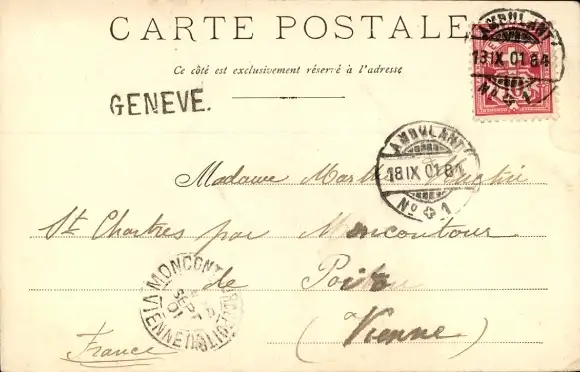 CARTE POSTALE
Ce côté est exclusivement réservé à l'adresse
AMBULANT
18 IX 01 81
No 1
GENEVE.
AMBULANT
18 IX 01 81
No 1
Madame
St Chartres par Moncontour
de Poitou
(Vienne)
France
MONCONTOUR
SEPT
01
VIENNE